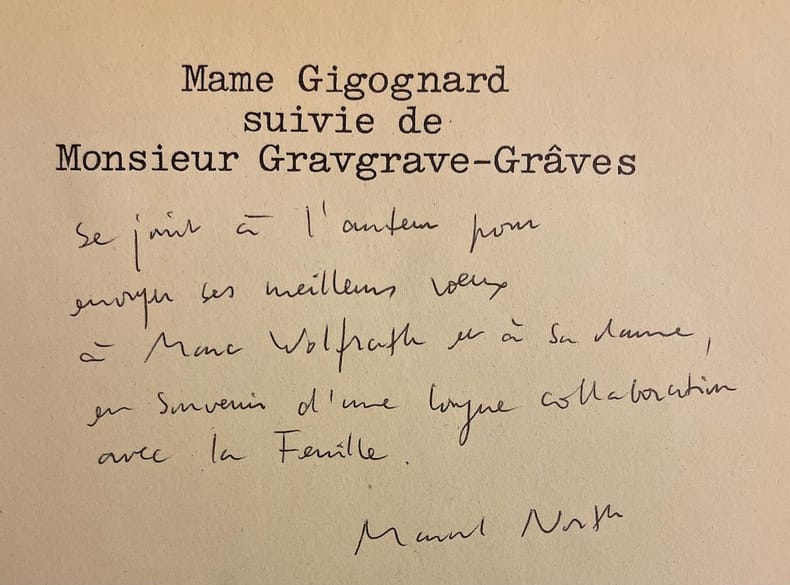 Mame Gigognard
suivie de
Monsieur Gravgrave-Grâves
se joint à l'auteur pour
envoyer ses meilleurs voeux
à Marc Wolfrath et à sa dame,
en souvenir d'une longue collaboration
avec la Feuille.
Marcel North